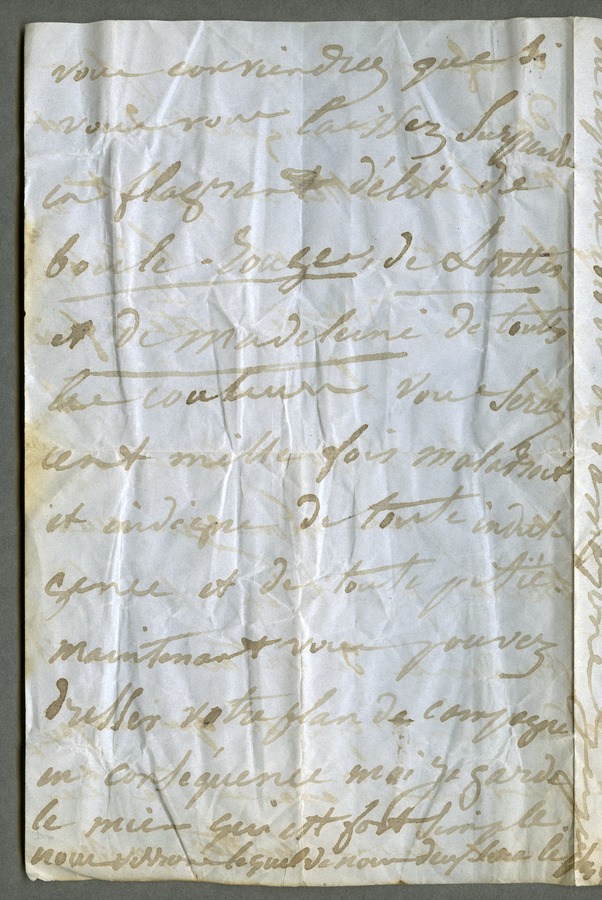 vous conviendrez que si
vous vous laissez surprendre
en flagrant délit de
boule-Rouge, de Lorettes
et de madeleine de toutes
les couleurs vous serez
cent mille fois maladroit
et indigne de toute indul-
gence et de toute pitié.
maintenant vous pouvez
dresser votre plan de campagne
en conséquence moi je garde
le mien qui est fort simple
nous verrons lequel de nous deux sera